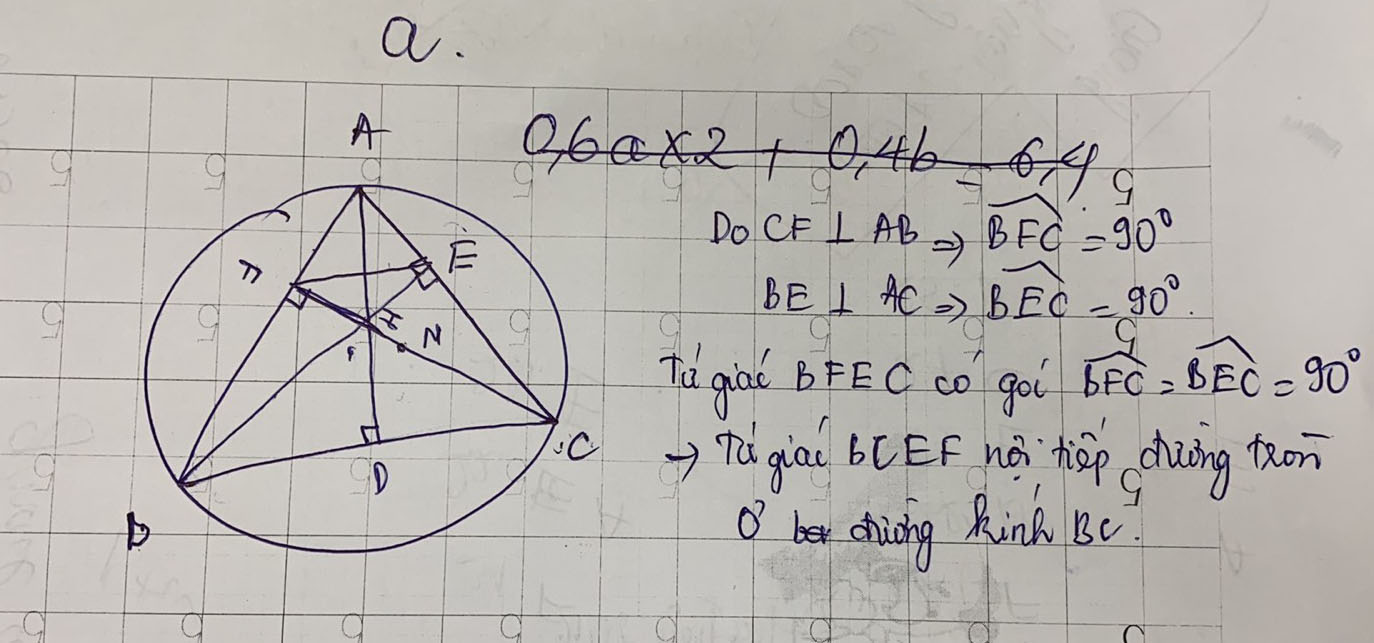 a.
A
0,6a x 2 + 0,4b = 6,4
Do CF ⊥ AB ⇒ BFC = 90°
E
F
BE ⊥ AC ⇒ BEC = 90°.
I
N
Tứ giác BFEC có goí BFC = BEC = 90°
C
→ Tứ giác BCEF nội tiếp đường tron
D
O' đường kính BC.
B